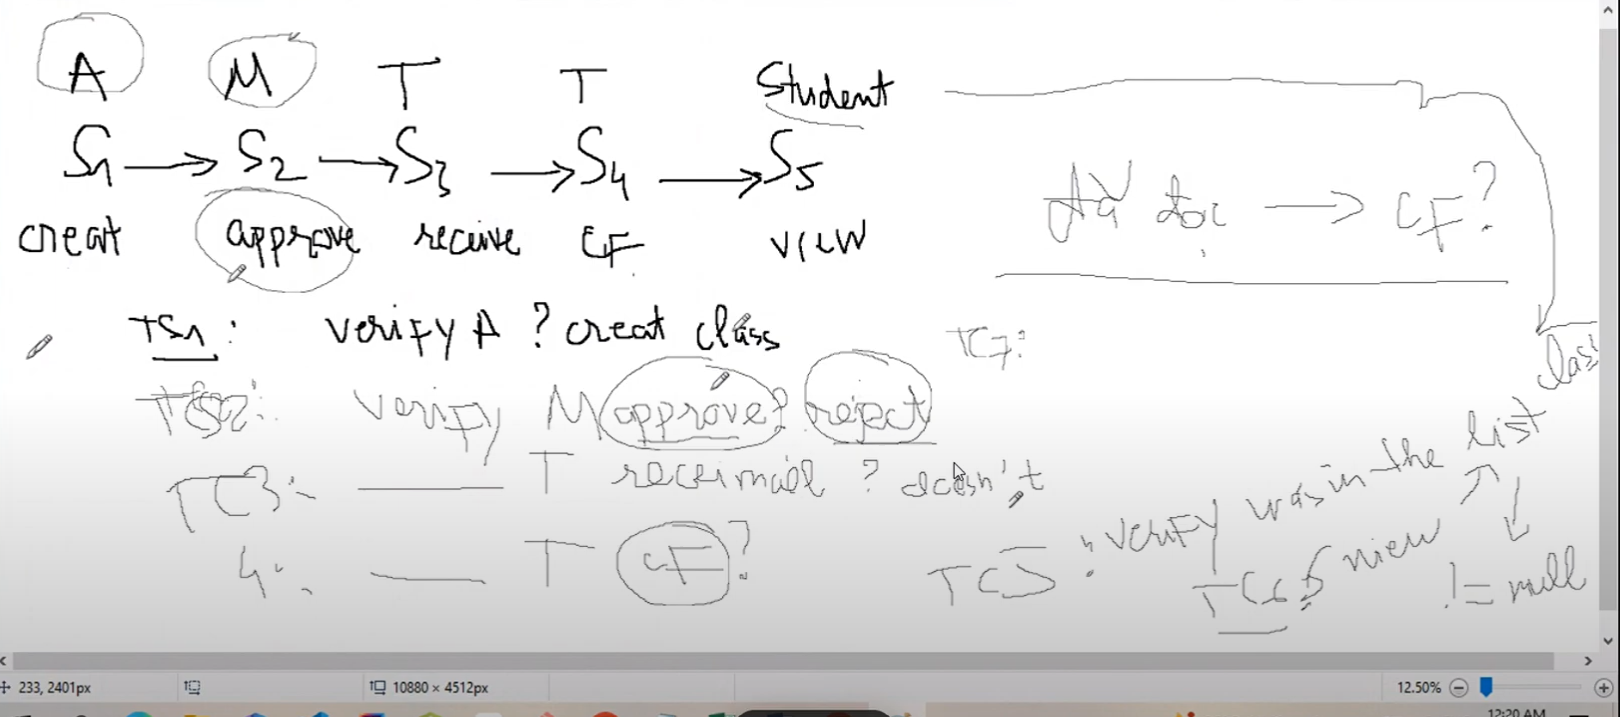 A M T T Student
S1 → S2 → S3 → S4 → S5
creat approve receive CF VIEW
doc → CF?
TS1: verify A ? creat class
TC7:
TS2: verify M approve? reject
TC3: T receimail ? doesn't
4: T CF?
TC5: verify was in the list class
TC6: S view
!= null
233, 2401px
10880 × 4512px
12.50%
12:20 AM